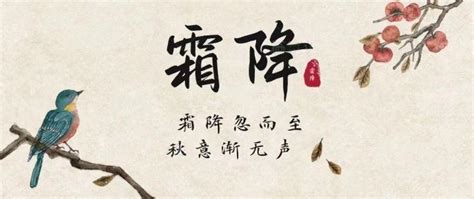 霜降
霜降
霜降忽而至
秋意渐无声